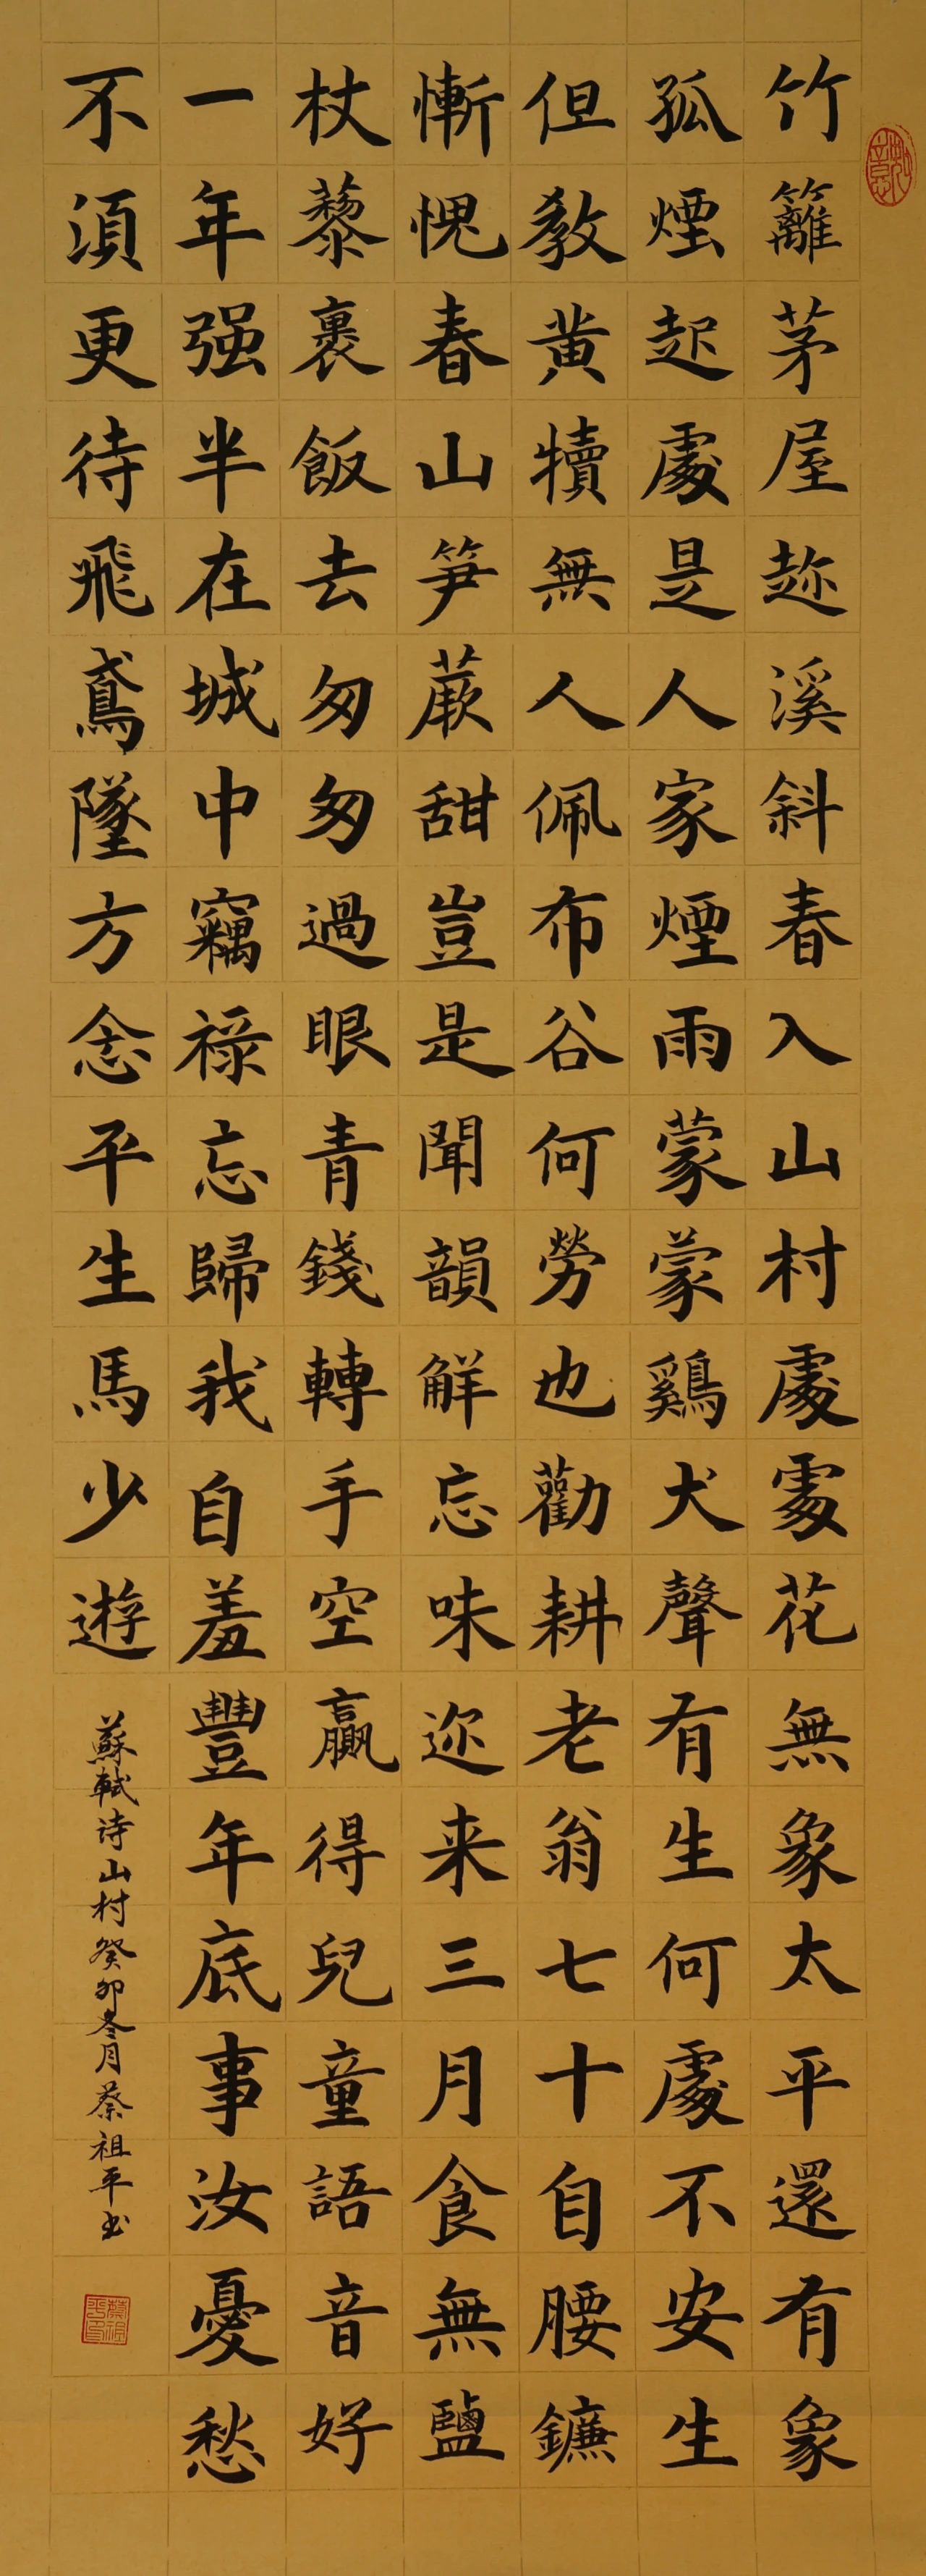 竹籬茅屋趂溪斜春入山村處處花無象太平還有象
孤煙起處是人家煙雨蒙蒙鷄犬聲有生何處不安生
但教黃犢無人佩布谷何勞也勸耕老翁七十自腰鐮
慚愧春山笋蕨甜豈是聞韻觧忘味迩来三月食無鹽
杖藜裹飯去匆匆過眼青錢轉手空贏得兒童語音好
一年强半在城中竊祿忘歸我自羞豐年底事汝憂愁
不須更待飛鳶墜方念平生馬少遊
蘇軾诗山村癸卯冬月蔡祖平书
蔡祖平印